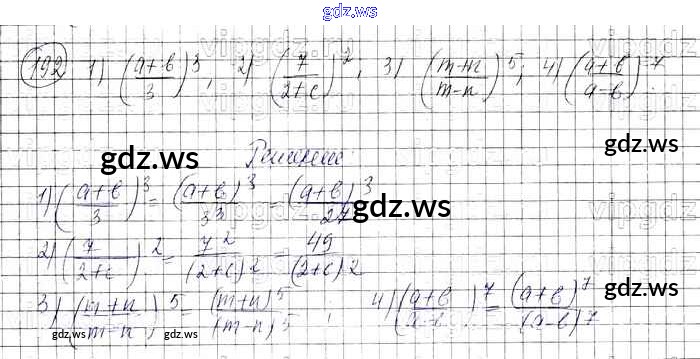 gdz.ws
192 1) ((a+b)/3)^3, 2) (7/(2+c))^2, 3) ((m+n)/(m-n))^5; 4) ((a+b)/(a-b))^7
gdz.ws
Решение:
gdz.ws
1) ((a+b)/3)^3 = (a+b)^3/3^3 = (a+b)^3/27
gdz.ws
2) (7/(2+c))^2 = 7^2/(2+c)^2 = 49/(2+c)^2
gdz.ws
3) ((m+n)/(m-n))^5 = (m+n)^5/(m-n)^5; 4) ((a+b)/(a-b))^7 = (a+b)^7/(a-b)^7
gdz.ws gdz.ws
gdz.ws